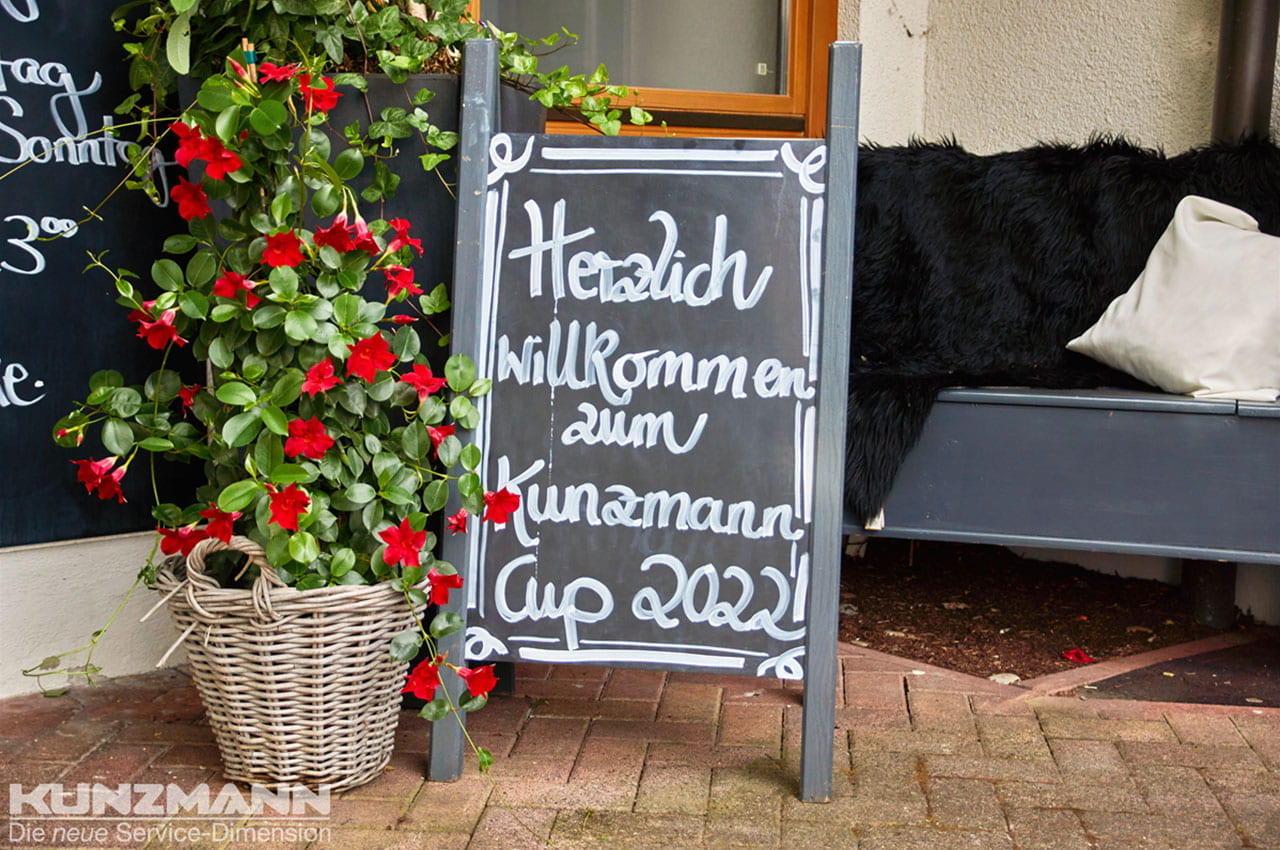 tag
Sonntag
3⁰⁰
Herzlich
willkommen
zum
Kunzmann
Cup 2022!
KUNZMANN
Die neue Service-Dimension